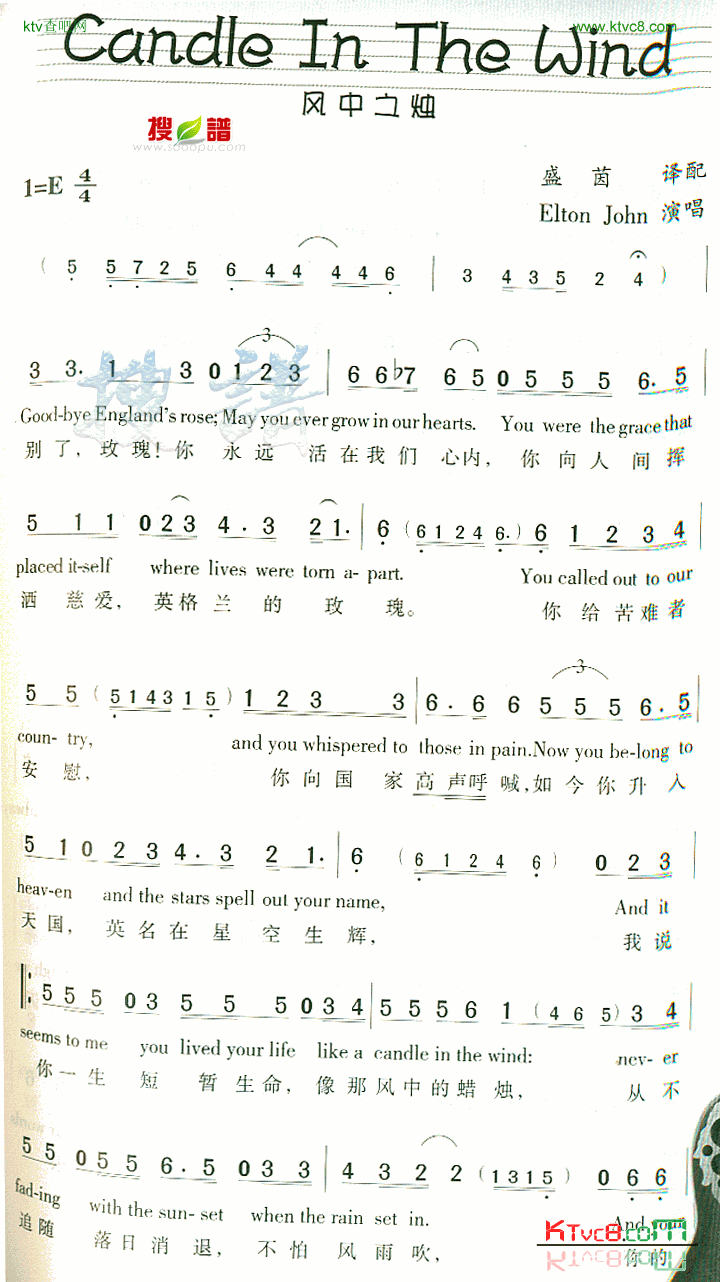 ktv查吧网 www.ktvc8.com
Candle In The Wind
风中之烛
搜 譜
www.sooopu.com
盛茵 译配
1=E 4/4
Elton John 演唱
( 5 5 7 2 5 6 4 4 4 4 6 | 3 4 3 5 2 4 ) |
3 3. 1 3 0 1 2 3 | 6 6 ♭7 6 5 0 5 5 5 6. 5
3
搜 譜
Good-bye England's rose; May you ever grow in our hearts. You were the grace that
别了, 玫瑰! 你 永远 活在我们 心内, 你向人间挥
5 1 1 0 2 3 4. 3 2 1. | 6 ( 6 1 2 4 6. ) 6 1 2 3 4
placed it-self where lives were torn a-part. You called out to our
洒 慈爱, 英格兰 的 玫 瑰。 你给苦难者
5 5 ( 5 1 4 3 1 5 ) 1 2 3 3 | 6. 6 6 5 5 5 6. 5
3
coun-try, and you whispered to those in pain. Now you be-long to
安 慰, 你向国 家高声呼喊, 如今你升入
5 1 0 2 3 4. 3 2 1. | 6 ( 6 1 2 4 6 ) 0 2 3
heav-en and the stars spell out your name, And it
天国, 英名在星空生辉, 我说
5 5 5 0 3 5 5 5 0 3 4 | 5 5 5 6 1 ( 4 6 5 ) 3 4
seems to me you lived your life like a candle in the wind: nev-er
你一生 短 暂生命, 像那风中的蜡烛, 从不
5 5 0 5 5 6. 5 0 3 3 | 4 3 2 2 ( 1 3 1 5 ) 0 6 6
fad-ing with the sun-set when the rain set in. And your
追随 落日消退, 不怕风雨吹, 你的
KTvc8.com